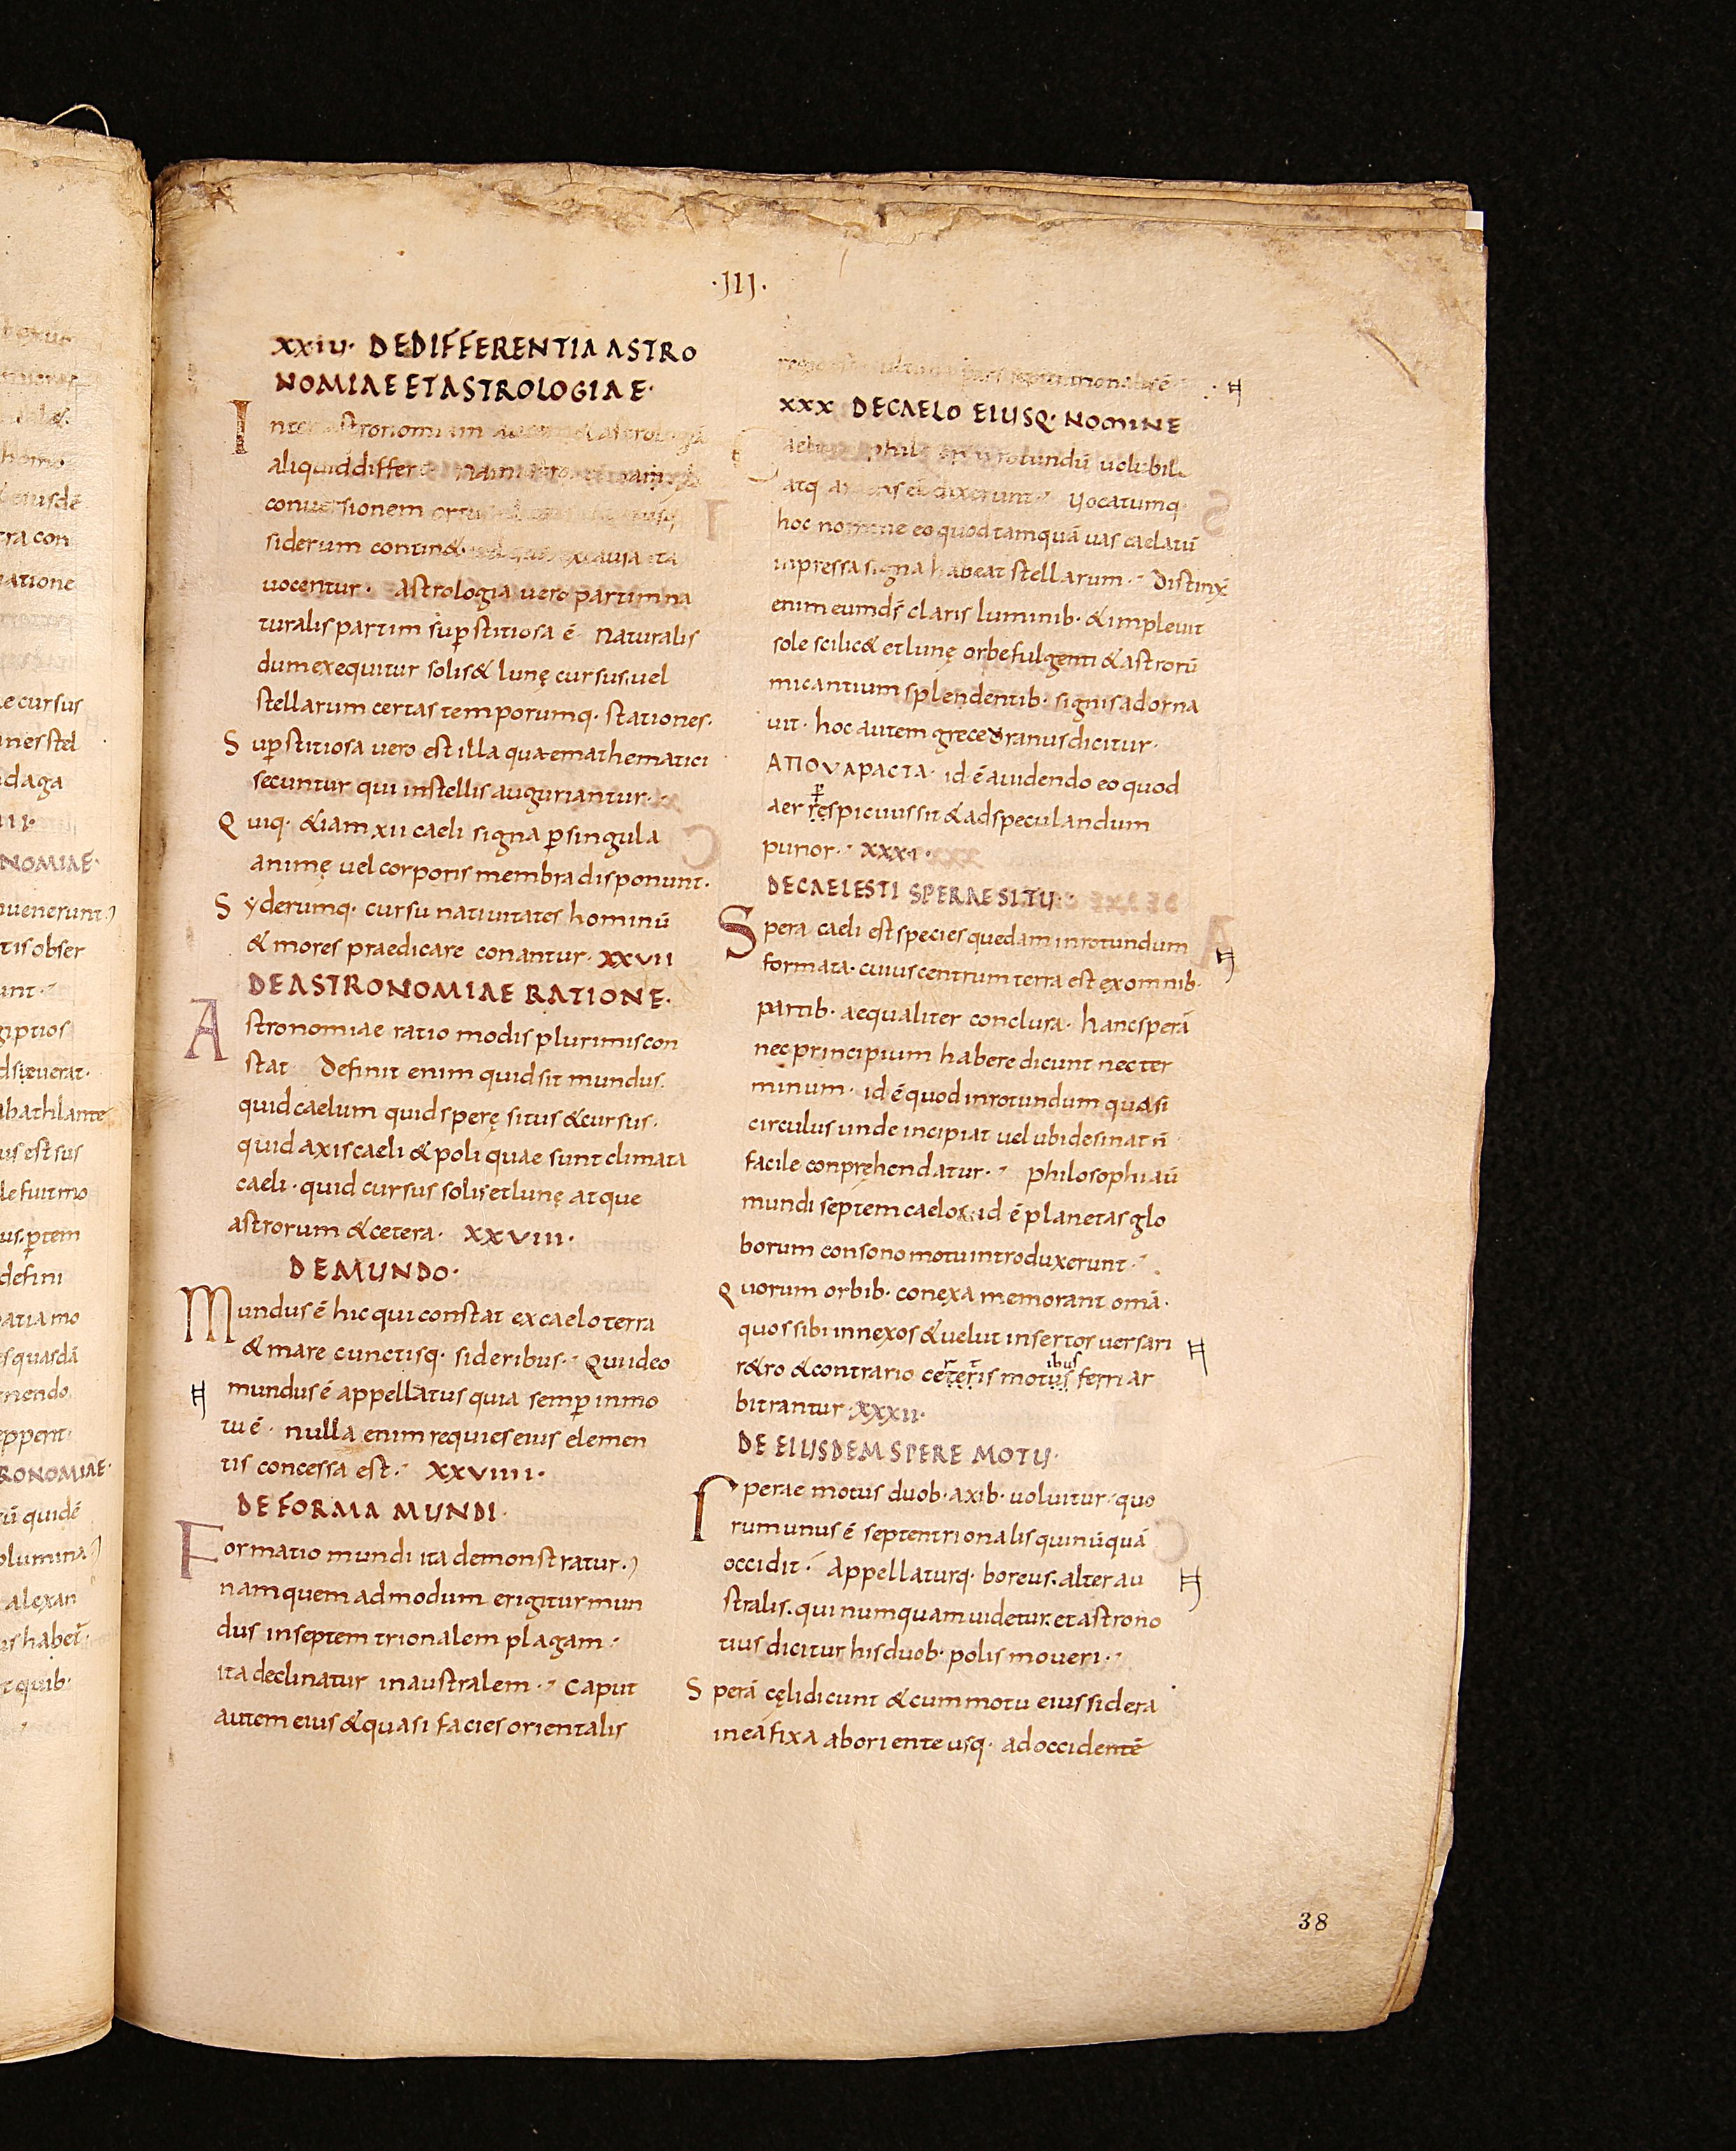 ·III·
XXIIII· DEDIFFERENTIA ASTRO
NOMIAE ET ASTROLOGIAE·
Inter astronomiam
aliquid differt nam
conuersionem
siderum contin& ita
uocentur· Astrologia uero partim na
turalis partim sup̄stitiosa ē Naturalis
dum exequitur solis & lunę cursus uel
stellarum certas temporumq· stationes·
Sup̄stitiosa uero est illa quae mathematici
secuntur qui in stellis auguriantur·
Quiq· &iam xii caeli signa p̄ singula
animę uel corporis membra disponunt·
Syderumq· cursu natiuitates hominū
& mores praedicare conantur· XXVII
DE ASTRONOMIAE RATIONE·
Astronomiae ratio modis plurimis con
stat Definit enim quid sit mundus·
quid caelum quid sperę situs & cursus·
quid axis caeli & poli quae sunt climata
caeli· quid cursus solis et lunę atque
astrorum & cetera· XXVIII·
DE MUNDO·
Mundus ē hic qui constat ex caelo terra
& mare cunctisq· sideribus· Qui ideo
mundus ē appellatus quia semp̄ in mo
tu ē· nulla enim requies eius elemen
tis concessa est· XXVIIII·
DE FORMA MUNDI·
Formatio mundi ita demonstratur·
nam quem ad modum erigitur mun
dus in septem trionalem plagam·
ita declinatur in australem· Caput
autem eius & quasi facies orientalis
pars septentrionalis ē
XXX DE CAELO EIUSQ· NOMINE
rotundū uolubile
atq ardens eē dixerunt· Vocatumq·
hoc nomine eo quod tamquā uas caelatū
inpressa signa habeat stellarum· Distinx̄
enim eum ds̄ claris luminib· & impleuit
sole scilic& et lunę orbe fulgenti & astrorū
micantium splendentib· signis adorna
uit· hoc autem grece ȣranus dicitur·
ΑΠΟΥΑΡΑCΤΑ· id ē a uidendo eo quod
aer respicuus sit & ad speculandum
purior· XXXI·
DE CAELESTI SPERAE SITU·
Spera caeli est species quedam in rotundum
formata· cuius centrum terra est ex omnib·
partib· aequaliter conclura· hanc sperā
nec principium habere dicunt nec ter
minum· id ē quod in rotundum quasi
circulus unde incipiat uel ubi desinat n̄
facile conprehendatur· philosophi aū
mundi septem caelos id ē planetas glo
borum consono motu introduxerunt·
Quorum orbib· conexa memorant omā·
quos sibi innexos & uelut insertos uersari
ibus
r&ro & contrario ceteris motus ferri ar
bitrantur· XXXII·
DE EIUSDEM SPERE MOTU·
Sperae motus duob· axib· uoluitur· quo
rum unus ē septentrionalis qui nūquā
occidit· Appellaturq· boreus· alter au
stralis· qui numquam uidetur· et astrono
tius dicitur his duob· polis moueri·
Sperā cęli dicunt & cum motu eius sidera
in eā fixa ab oriente usq· ad occidentē
38